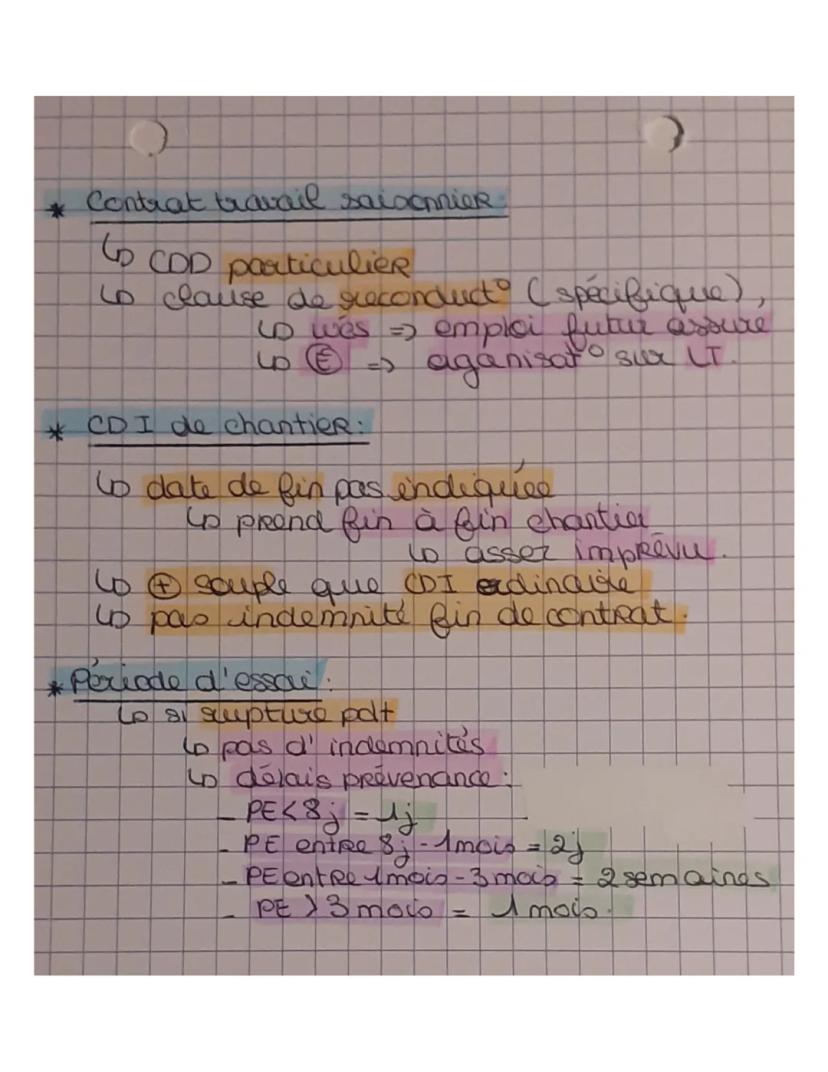 * Contrat travail saisonnier:
↳ CDD particulier
↳ clause de reconduct° (spécifique),
↳ wés => emploi futur assuré
↳ Ⓔ => organisat° sur LT.
* CDI de chantier:
↳ date de fin pas indiquée
↳ prend fin à fin chantier
↳ assez imprévu.
↳ ⊕ souple que CDI ordinaire
↳ pas indemnité fin de contrat.
* Période d'essai:
↳ si rupture pdt
↳ pas d'indemnités
↳ délais prévenance:
- PE < 8j = 1j
- PE entre 8j - 1mois = 2j
- PE entre 1mois - 3 mois = 2 semaines
- PE > 3 mois = 1 mois.